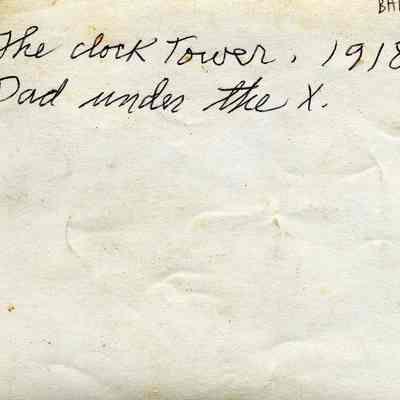 The clock Tower. 1918
Dad under the X.